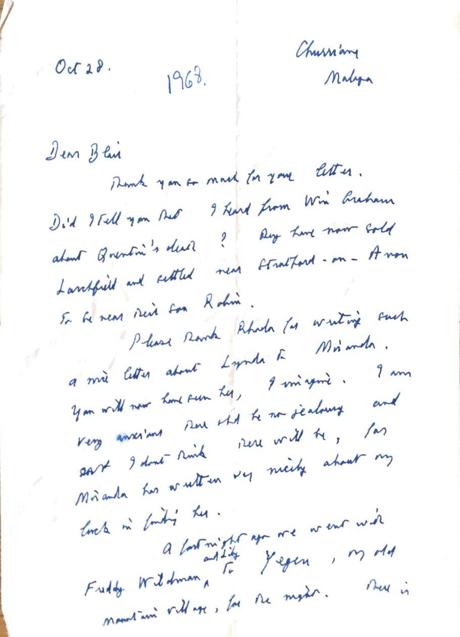 Churriana
Malaga
Oct 28.
1968.
Dear Blair
Thank you so much for your letter.
Did I tell you that I heard from Win Graham
about Quentin's death? They have now sold
Larchfield and settled near Stratford-on-Avon
to be near their son Robin.
Please thank Rhoda for writing such
a nice letter about Lynda to Miranda.
You will now have seen her, I imagine. I am
very anxious there shd be no jealousy and
I dont think there will be, for
Miranda has written very nicely about my
luck in finding her.
A fortnight ago we went with
Freddy Wildman to Yegen, my old
mountain village, for the night. There is